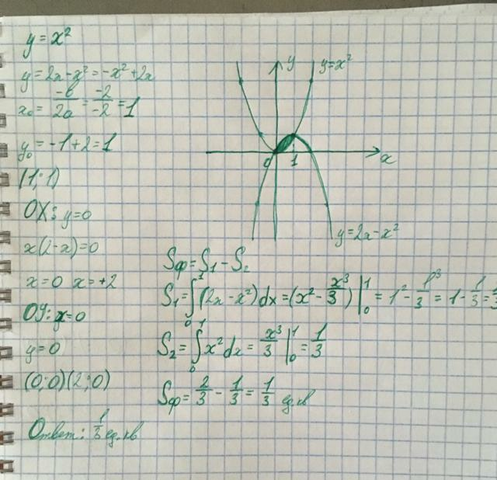 y = x²
y = 2x - x² = -x² + 2x
x₀ = -b/2a = -2/-2 = 1
y₀ = -1 + 2 = 1
(1; 1)
OX: y = 0
x(2-x) = 0
x = 0 x = +2
OY: x = 0
y = 0
(0; 0)(2; 0)
Ответ: 1/3 ед. кв
y
y = x²
0
1
x
y = 2x - x²
Sф = S₁ - S₂
S₁ = ∫₀¹ (2x - x²) dx = (x² - x³/3) |₀¹ = 1² - 1³/3 = 1 - 1/3 =
S₂ = ∫₀¹ x² dx = x³/3 |₀¹ = 1/3
Sф = 2/3 - 1/3 = 1/3 ед. кв